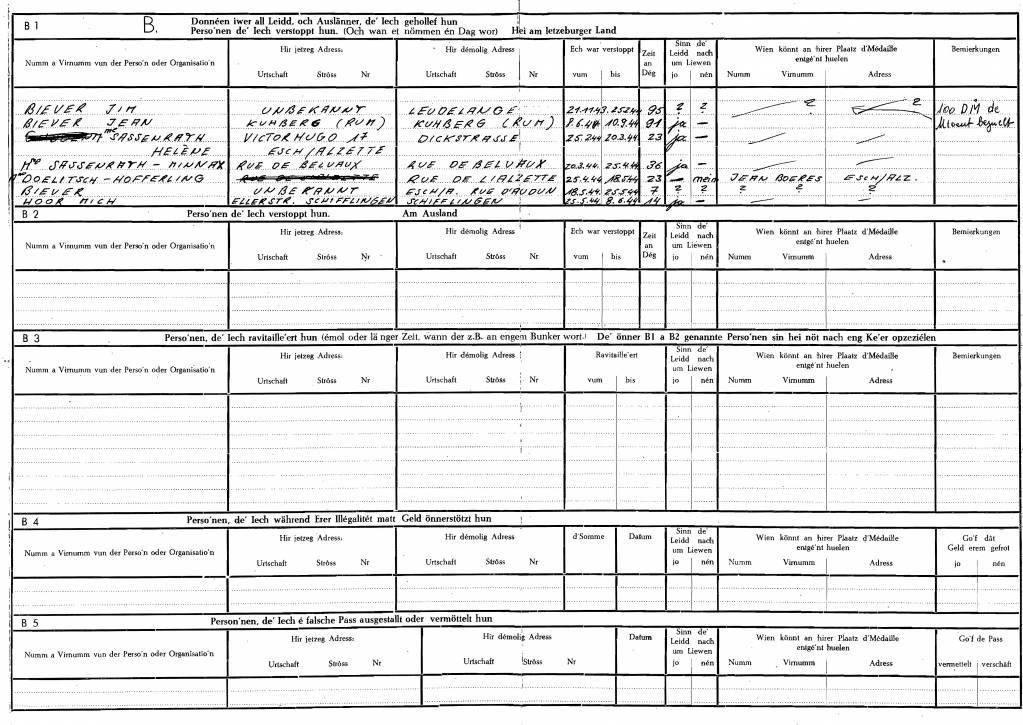 B 1 B. Donnéen iwer all Leidd, och Auslänner, de' Iech gehollef hun
Perso'nen de' Iech verstoppt hun. (Och wan et nömmen én Dag wor) Hei am letzeburger Land
Numm a Virnumm vun der Perso'n oder Organisatio'n Hir jetzeg Adress: Hir démolig Adress Ech war verstoppt Zeit an Dég Sinn de' Leidd nach um Liewen Wien könnt an hirer Plaatz d'Médaille entgé'nt huelen Bemierkungen
Urtschaft Ströss Nr Urtschaft Ströss Nr vum bis jo nén Numm Virnumm Adress
BIEVER JIM UNBEKANNT LEUDELANGE 21.11.43. 25.2.44 95 ? ? — ? — ? 100 DM de
BIEVER JEAN KUHBERG (RUM) KUHBERG (RUM) 8.6.44 10.9.44 91 ja —
Mme SASSENRATH VICTOR HUGO 17 DICKSTRASSE 25.2.44 20.3.44 23 ja — — —
HELÈNE ESCH/ALZETTE
Mme SASSENRATH - MINNAX RUE DE BELVAUX RUE DE BELVAUX 20.3.44. 25.4.44 36 ja — — —
Mme DOELITSCH - HOFFERLING RUE DE L'ALZETTE 25.4.44 18.5.44 23 — nein JEAN BOERES ESCH/ALZ.
BIEVER UNBEKANNT ESCH/A. RUE D'AUDUN 18.5.44 25.5.44 7 ? ? ? ? ?
HOOR MICH ELLERSTR. SCHIFFLINGEN SCHIFFLINGEN 25.5.44 8.6.44 14 ja —
B 2 Perso'nen de' Iech verstoppt hun. Am Ausland
Numm a Virnumm vun der Perso'n oder Organisatio'n Hir jetzeg Adress: Hir démolig Adress Ech war verstoppt Zeit an Dég Sinn de' Leidd nach um Liewen Wien könnt an hirer Plaatz d'Médaille entgé'nt huelen Bemierkungen
Urtschaft Ströss Nr Urtschaft Ströss Nr vum bis jo nén Numm Virnumm Adress
B 3 Perso'nen, de' Iech ravitaille'ert hun (émol oder länger Zeit, wann der z.B. an engem Bunker wort.) De' önner B1 a B2 genannte Perso'nen sin hei nöt nach eng Ke'er opzeziélen
Numm a Virnumm vun der Perso'n oder Organisatio'n Hir jetzeg Adress: Hir démolig Adress Ravitaille'ert Sinn de' Leidd nach um Liewen Wien könnt an hirer Plaatz d'Médaille entgé'nt huelen Bemierkungen
Urtschaft Ströss Nr Urtschaft Ströss Nr vum bis jo nén Numm Virnumm Adress
B 4 Perso'nen, de' Iech während Erer Illégalitét matt Geld önnerstötzt hun
Numm a Virnumm vun der Perso'n oder Organisatio'n Hir jetzeg Adress: Hir démolig Adress d'Somme Datum Sinn de' Leidd nach um Liewen Wien könnt an hirer Plaatz d'Médaille entgé'nt huelen Go'f dât Geld erem gefrot
Urtschaft Ströss Nr Urtschaft Ströss Nr jo nén Numm Virnumm Adress jo nén
B 5 Person'nen, de' Iech é falsche Pass ausgestallt oder vermöttelt hun
Numm a Virnumm vun der Perso'n oder Organisatio'n Hir jetzeg Adress: Hir démolig Adress Datum Sinn de' Leidd nach um Liewen Wien könnt an hirer Plaatz d'Médaille entgé'nt huelen Go'f de Pass
Urtschaft Ströss Nr Urtschaft Ströss Nr jo nén Numm Virnumm Adress vermettelt verschâft